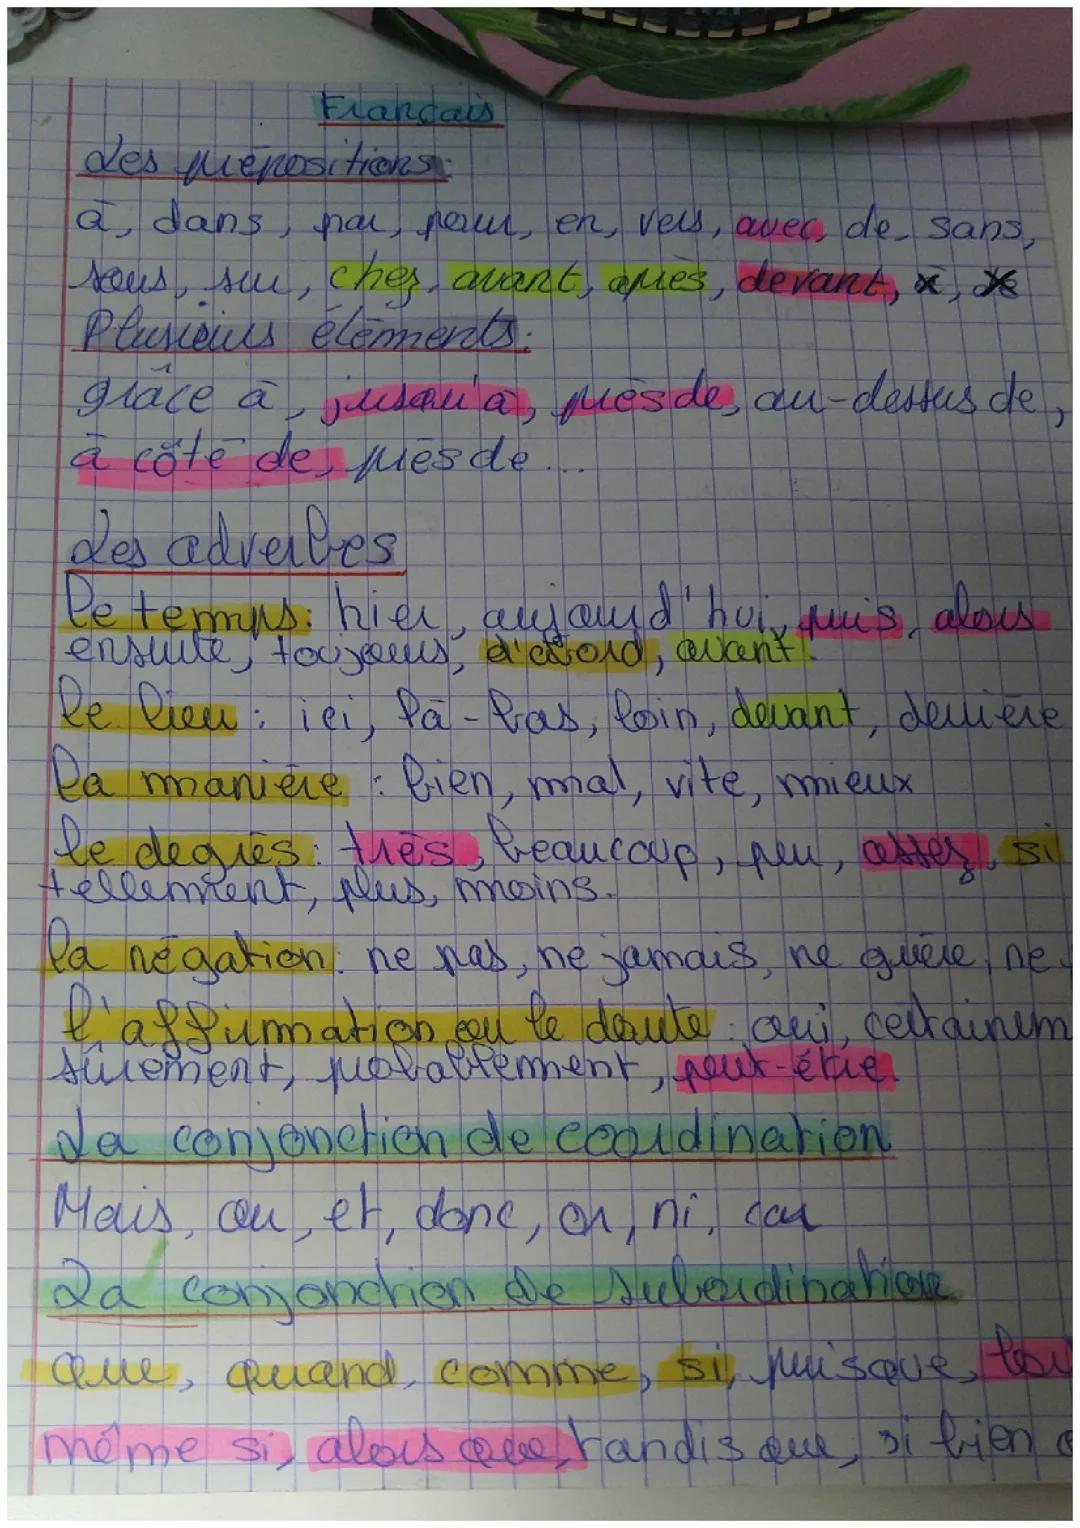 Français
Les prépositions:
à, dans, par, pour, en, vers, avec, de, sans,
sous, sur, chez, avant, après, devant,
Plusieurs éléments:
grâce à, jusqu'à, près de, au-dessus de,
à côté de, près de...
Les adverbes
le temps: hier, aujourd'hui, puis, alors
ensuite, toujours, d'abord, avant.
le lieu: ici, là-bas, loin, devant, derrière
la manière: bien, mal, vite, mieux
le degrès: très, beaucoup, peu, assez, si
tellement, plus, moins.
la négation: ne pas, ne jamais, ne guère, ne
l'affirmation ou le doute: oui, certainem
sûrement, probablement, peut-être.
La conjonction de coordination
Mais, ou, et, donc, or, ni, car
La conjonction de subordination
que, quand, comme, si, puisque,
même si, alors que, tandis que, si bien